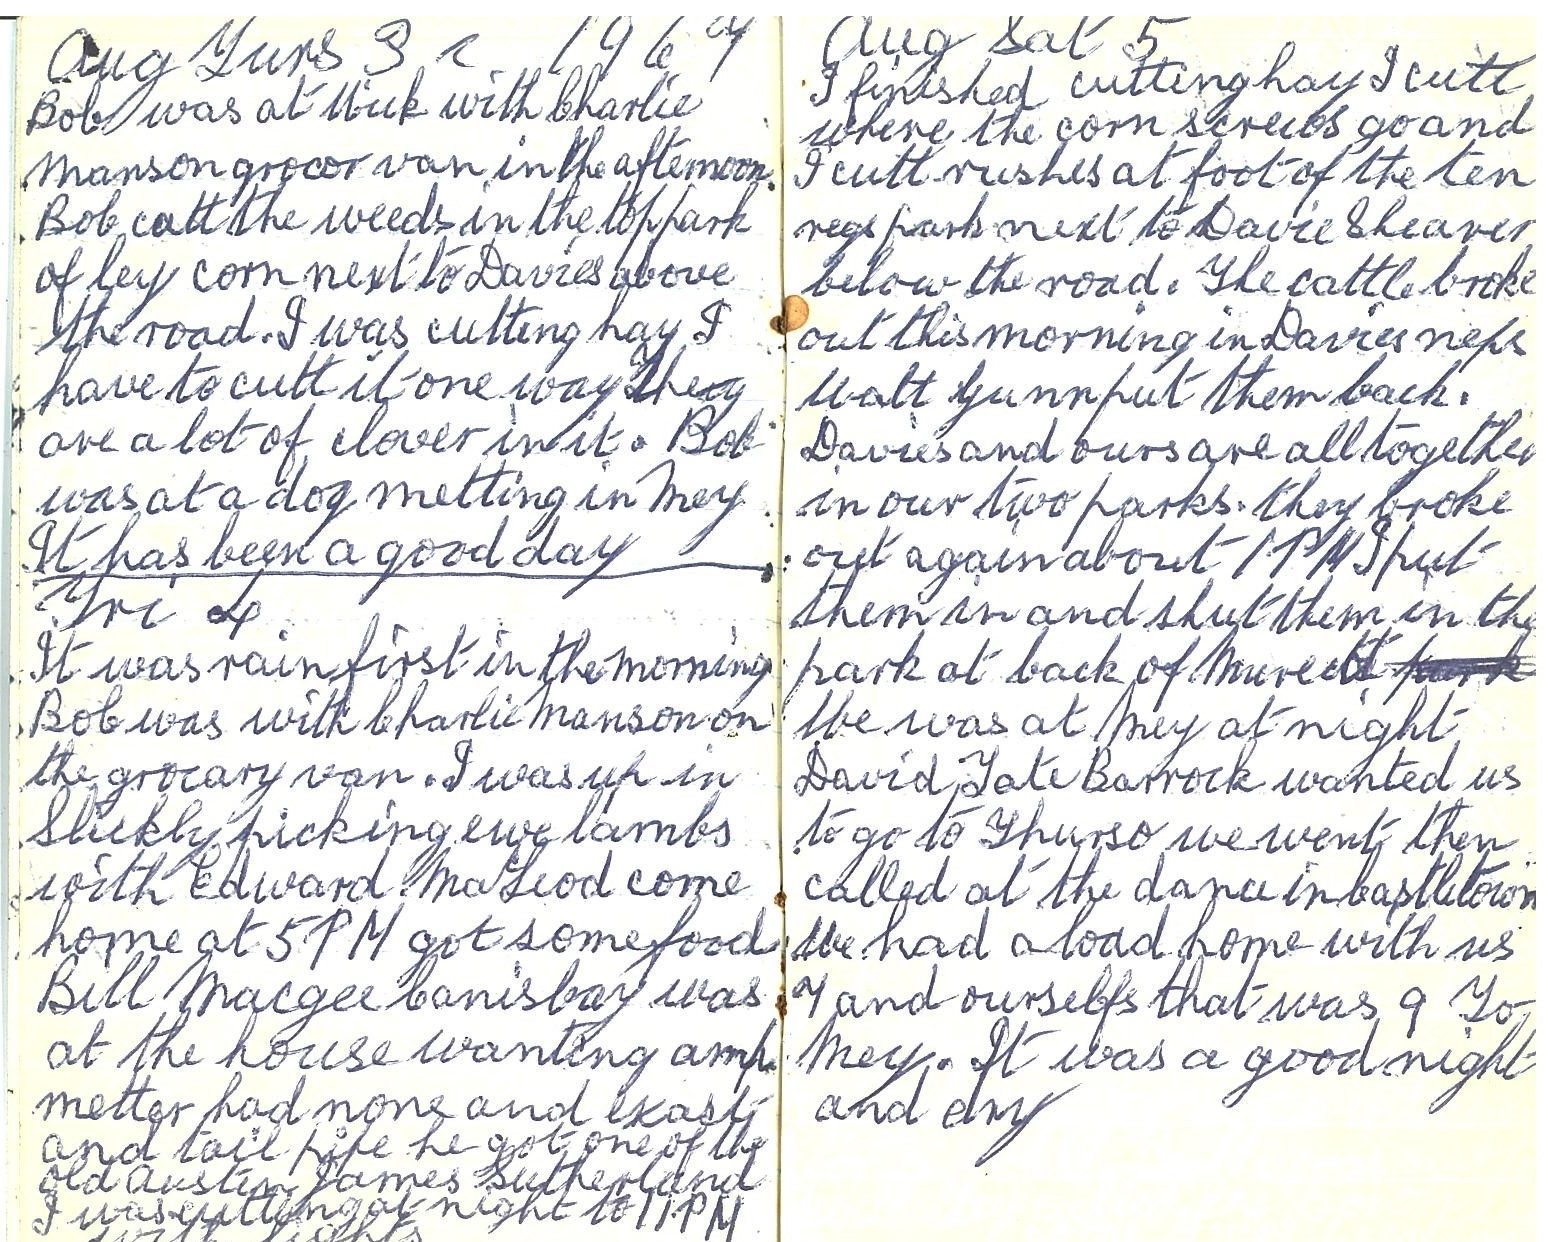 Aug Thurs 3 1967
Bob was at Wick with Charlie
Manson grocor van in the afternoon.
Bob cutt the weeds in the top park
of ley corn next to Davies above
the road. I was cutting hay I
have to cutt it one way they
are a lot of clover in it. Bob
was at a dog metting in Mey
It has been a good day
Fri 4
It was rain first in the morning
Bob was with Charlie Manson on
the grocary van. I was up in
Slickly picking ewe lambs
with Edward MacLeod come
home at 5 PM got some food
Bill Macgee Canisbay was
at the house wanting amp.
metter had none and exast
and tail pipe he got one of the
old Austin James Sutherland
I was cutting at night to 11 PM
with lights
Aug Sat 5
I finished cutting hay I cutt
where the corn screws go and
I cutt rushes at foot of the ten
regs park next to Davie Shearer
below the road. The cattle broke
out this morning in Davies neps
Watt Gunn put them back.
Davies and ours are all together
in our two parks. they broke
out again about 1 PM I put
them in and shut them in the
park at back of
We was at Mey at night
David Tate Barrock wanted us
to go to Thurso we went then
called at the dance in Castletown
We had a load home with us
7 and ourselfs that was 9 To
Mey. It was a good night
and dry